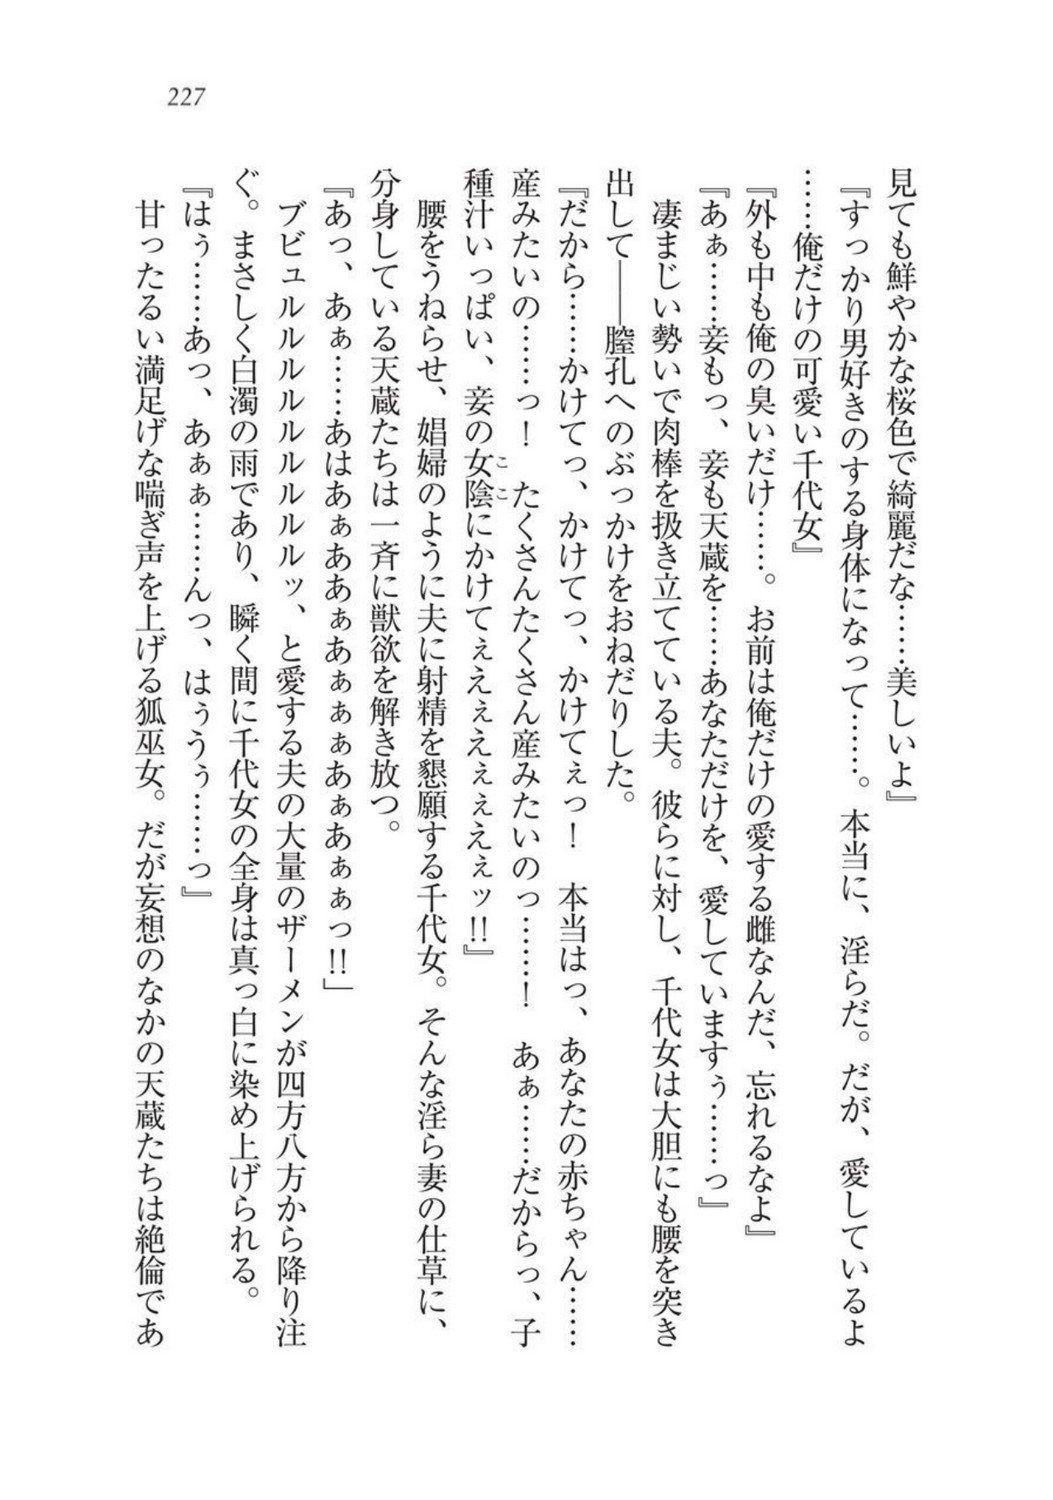 227
見ても鮮やかな桜色で綺麗だな……美しいよ』
『すっかり男好きのする身体になって……。本当に、淫らだ。だが、愛しているよ
……俺だけの可愛い千代女』
『外も中も俺の臭いだけ……。お前は俺だけの愛する雌なんだ、忘れるなよ』
『あぁ……妾もっ、妾も天蔵を……あなただけを、愛していますぅ……っ』
凄まじい勢いで肉棒を扱き立てている夫。彼らに対し、千代女は大胆にも腰を突き
出して――膣孔へのぶっかけをおねだりした。
『だから……かけてっ、かけてっ、かけてぇっ！　本当はっ、あなたの赤ちゃん……
産みたいの……っ！　たくさんたくさん産みたいのっ……！　あぁ……だからっ、子
種汁いっぱい、妾の女陰ここにかけてぇえぇえぇぇえぇッ!!』
腰をうねらせ、娼婦のように夫に射精を懇願する千代女。そんな淫ら妻の仕草に、
分身している天蔵たちは一斉に獣欲を解き放つ。
『あっ、あぁ……あはあぁああぁあぁぁぁあぁあぁぁっ!!」
ブビュルルルルルルルルッ、と愛する夫の大量のザーメンが四方八方から降り注
ぐ。まさしく白濁の雨であり、瞬く間に千代女の全身は真っ白に染め上げられる。
『はぅ……あっ、あぁぁ……んっ、はぅうぅ……っ』
甘ったるい満足げな喘ぎ声を上げる狐巫女。だが妄想のなかの天蔵たちは絶倫であ